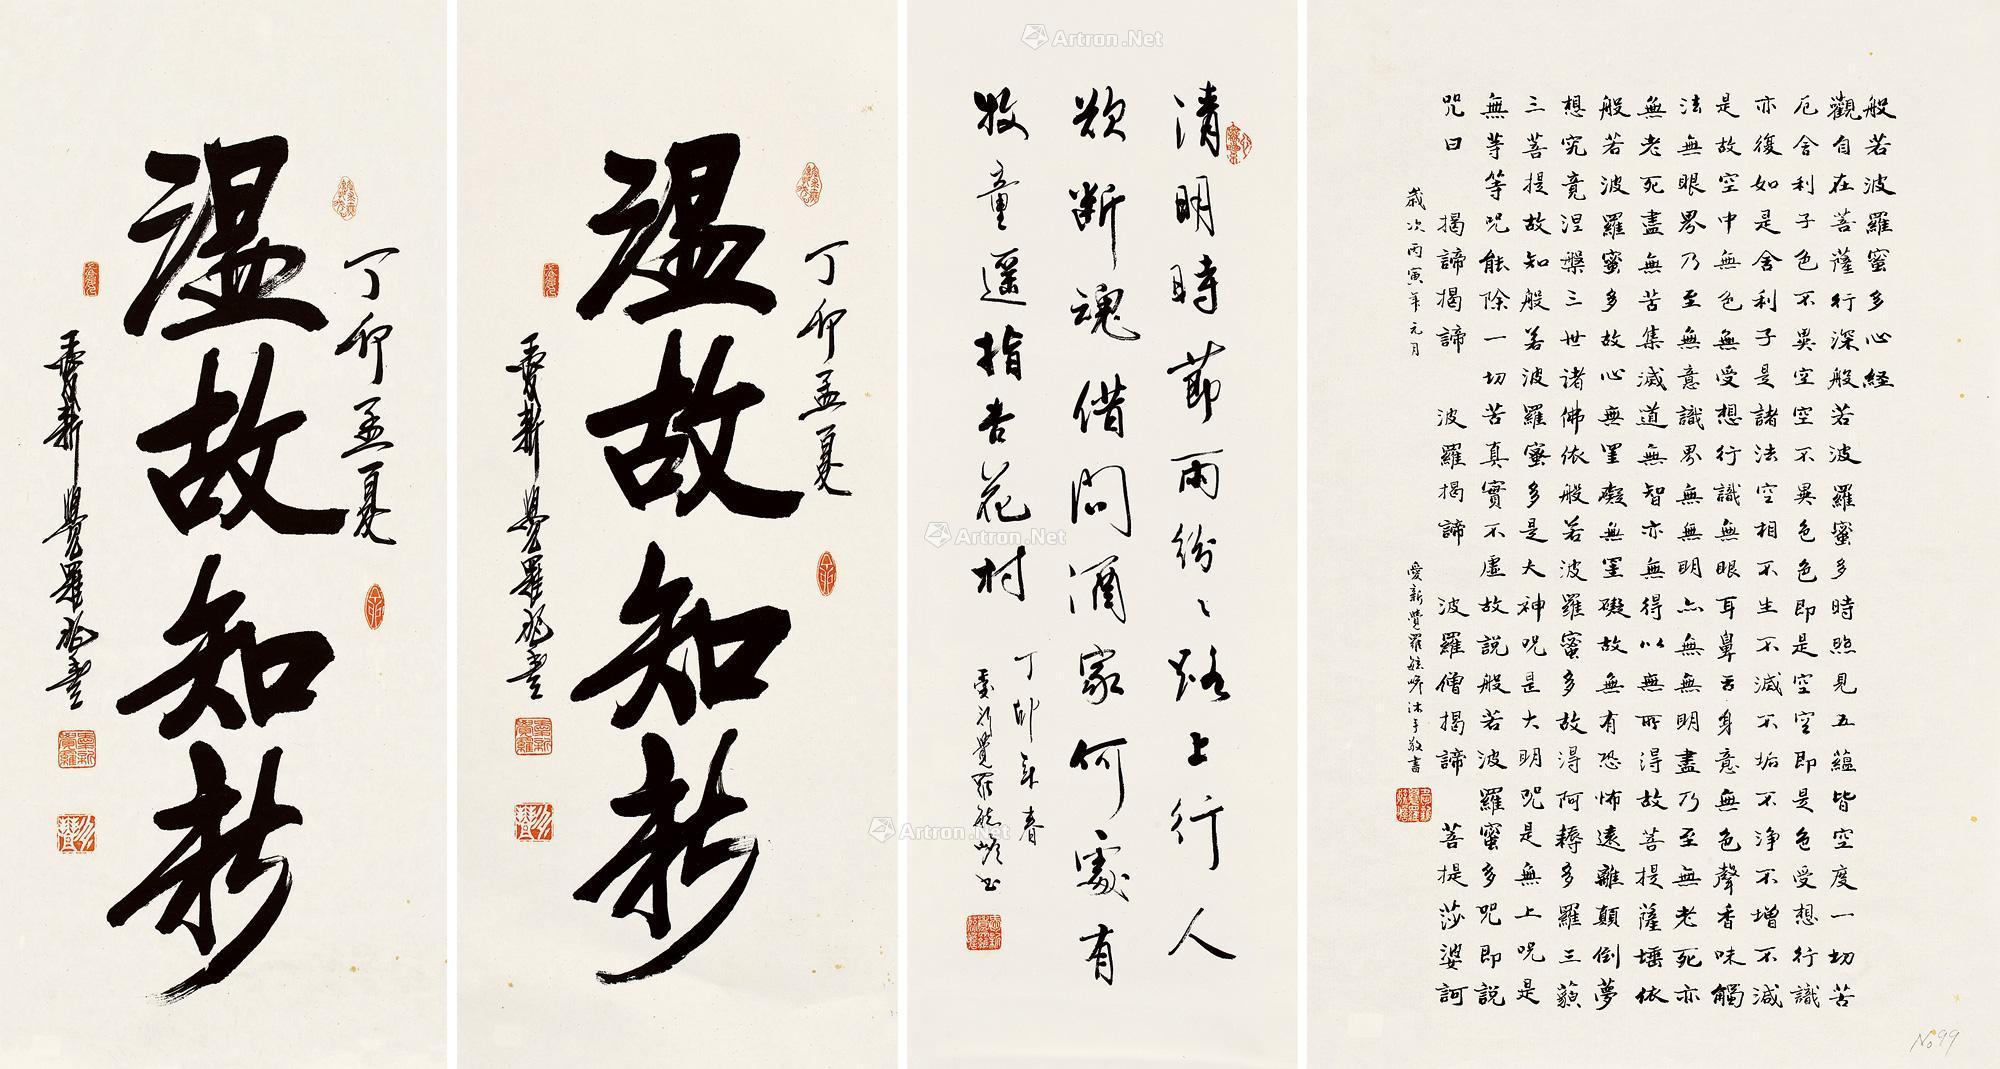 丁卯孟夏
溫故知新
愛新覺羅書
愛新覺羅
丁卯孟夏
溫故知新
愛新覺羅書
愛新覺羅
清明時節雨紛〻路上行人
欲斷魂借問酒家何處有
牧童遥指杏花村
丁卯年春
愛新覺羅毓書
般若波羅蜜多心経
觀自在菩薩行深般若波羅蜜多時照見五蘊皆空度一切苦
厄舍利子色不異空空不異色色即是空空即是色受想行識
亦復如是舍利子是諸法空相不生不滅不垢不淨不增不減
是故空中無色無受想行識無眼耳鼻舌身意無色聲香味觸
法無眼界乃至無意識界無無明亦無無明盡乃至無老死亦
無老死盡無苦集滅道無智亦無得以無所得故菩提薩埵依
般若波羅蜜多故心無罣礙無罣礙故無有恐怖遠離顛倒夢
想究竟涅槃三世諸佛依般若波羅蜜多故得阿耨多羅三藐
三菩提故知般若波羅蜜多是大神咒是大明咒是無上咒是
無等等咒能除一切苦真實不虛故説般若波羅蜜多咒即說
咒曰 揭諦揭諦 波羅揭諦 波羅僧揭諦 菩提莎婆訶
歲次丙寅年元月
愛新覺羅毓沐手敬書
No 99
Artron.Net
Artron.Net
Artron.Net